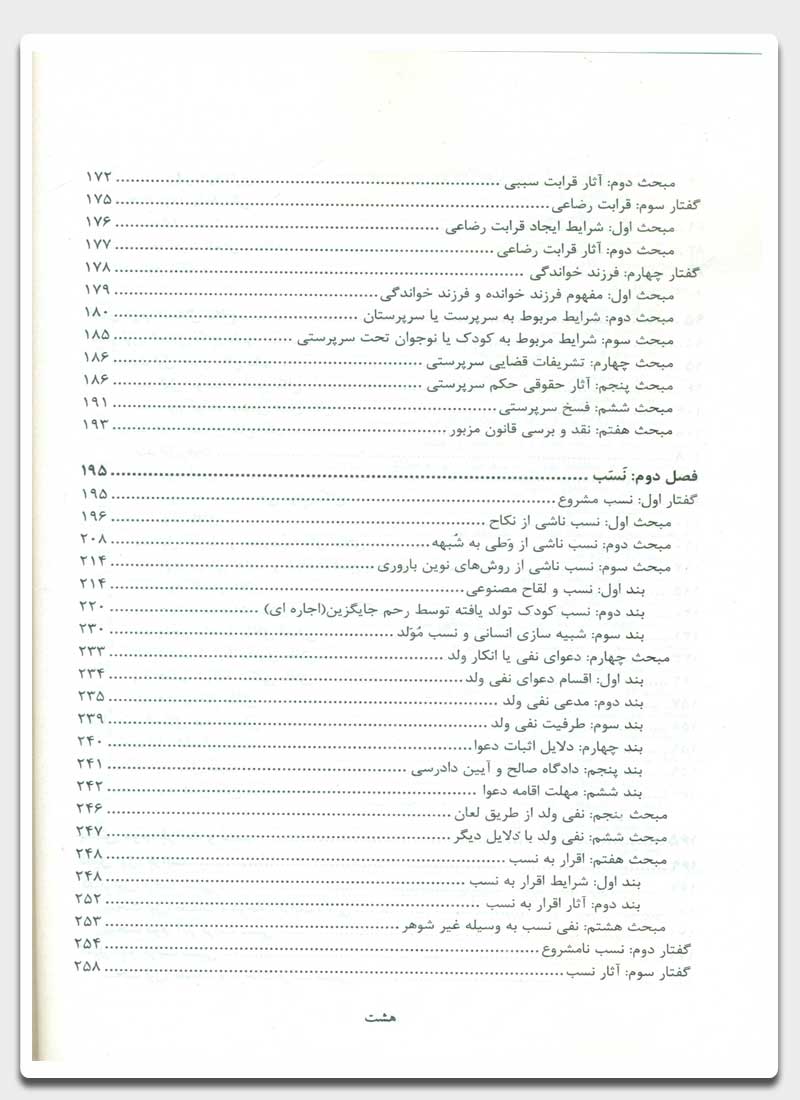 مبحث دوم: آثار قرابت سببی ........ ۱۷۲
گفتار سوم: قرابت رضاعی ........ ۱۷۵
مبحث اول: شرایط ایجاد قرابت رضاعی ........ ۱۷۶
مبحث دوم: آثار قرابت رضاعی ........ ۱۷۷
گفتار چهارم: فرزند خواندگی ........ ۱۷۸
مبحث اول: مفهوم فرزند خوانده و فرزند خواندگی ........ ۱۷۹
مبحث دوم: شرایط مربوط به سرپرست یا سرپرستان ........ ۱۸۰
مبحث سوم: شرایط مربوط به کودک یا نوجوان تحت سرپرستی ........ ۱۸۵
مبحث چهارم: تشریفات قضایی سرپرستی ........ ۱۸۶
مبحث پنجم: آثار حقوقی حکم سرپرستی ........ ۱۸۶
مبحث ششم: فسخ سرپرستی ........ ۱۹۱
مبحث هفتم: نقد و برسی قانون مزبور ........ ۱۹۳
فصل دوم: نَسَب ........ ۱۹۵
گفتار اول: نسب مشروع ........ ۱۹۵
مبحث اول: نسب ناشی از نکاح ........ ۱۹۶
مبحث دوم: نسب ناشی از وَطی به شُبهه ........ ۲۰۸
مبحث سوم: نسب ناشی از روش‌های نوین باروری ........ ۲۱۴
بند اول: نسب و لقاح مصنوعی ........ ۲۱۴
بند دوم: نسب کودک تولد یافته توسط رحم جایگزین(اجاره ای) ........ ۲۲۰
بند سوم: شبیه سازی انسانی و نسب مُوَلد ........ ۲۳۰
مبحث چهارم: دعوای نفی یا انکار ولد ........ ۲۳۳
بند اول: اقسام دعوای نفی ولد ........ ۲۳۴
بند دوم: مدعی نفی ولد ........ ۲۳۵
بند سوم: طرفیت نفی ولد ........ ۲۳۹
بند چهارم: دلایل اثبات دعوا ........ ۲۴۰
بند پنجم: دادگاه صالح و آیین دادرسی ........ ۲۴۱
بند ششم: مهلت اقامه دعوا ........ ۲۴۲
مبحث پنجم: نفی ولد از طریق لعان ........ ۲۴۶
مبحث ششم: نفی ولد با دلایل دیگر ........ ۲۴۷
مبحث هفتم: اقرار به نسب ........ ۲۴۸
بند اول: شرایط اقرار به نسب ........ ۲۴۸
بند دوم: آثار اقرار به نسب ........ ۲۵۲
مبحث هشتم: نفی نسب به وسیله غیر شوهر ........ ۲۵۳
گفتار دوم: نسب نامشروع ........ ۲۵۴
گفتار سوم: آثار نسب ........ ۲۵۸
هشت